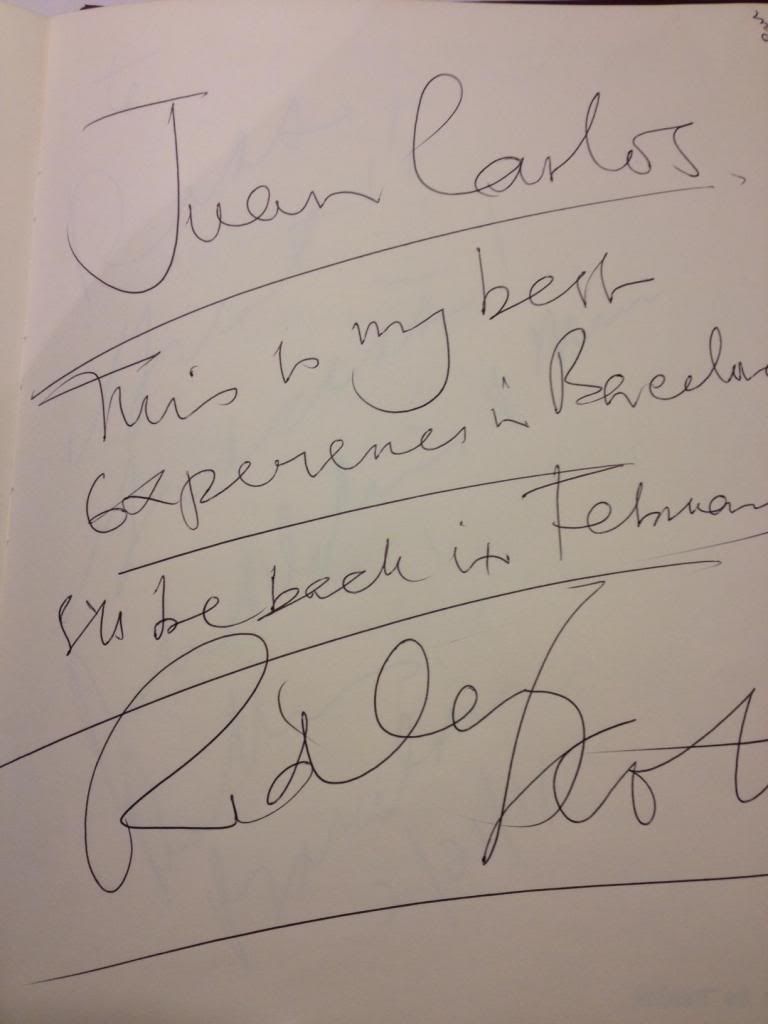 Juan Carlos.
This is my best
Experiences in Barcelona
I'll be back in February
Ridley Scott